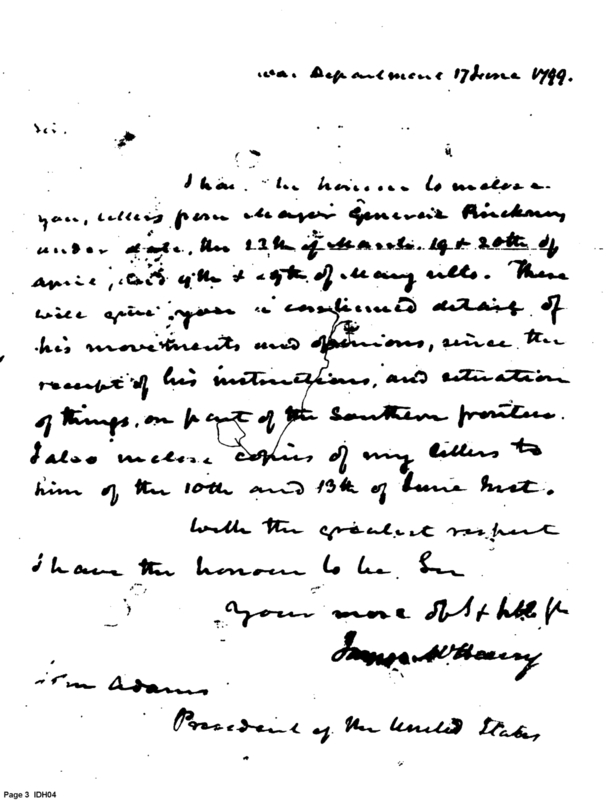 War Department 17 June 1799.
Sir.
I have the honour to inclose
you, letters from Major General Pinckney
under date, the 23th of March 19 & 20th of
april, and 9th & 29th of May ulto. These
will give you a continued detail of
his movements and opinions, since the
receipt of his instructions, and situation
of things, on part of the Southern frontier.
I also inclose copies of my letters to
him of the 10th and 13th of June Inst.
With the greatest respect
I have the honour to be, Sir
Your most obt & hble
James McHenry
John Adams
President of the United States
Page 3 IDH04